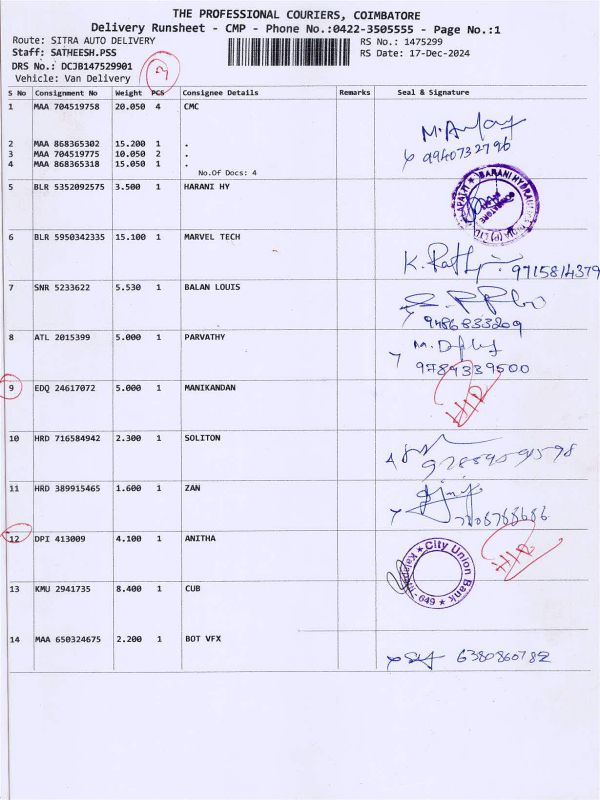 THE PROFESSIONAL COURIERS, COIMBATORE
Delivery Runsheet - CMP - Phone No.:0422-3505555 - Page No.:1
Route: SITRA AUTO DELIVERY RS No.: 1475299
Staff: SATHEESH.PSS RS Date: 17-Dec-2024
DRS No.: DCJB147529901
Vehicle: Van Delivery
S No Consignment No Weight PCS Consignee Details Remarks Seal & Signature
1 MAA 704519758 20.050 4 CMC
2 MAA 868365302 15.200 1 .
3 MAA 704519775 10.050 2 . 9940732796
4 MAA 868365318 15.050 1 .
No.Of Docs: 4
5 BLR 5352092575 3.500 1 HARANI HY
6 BLR 5950342335 15.100 1 MARVEL TECH
9715814379
7 SNR 5233622 5.530 1 BALAN LOUIS
9486833209
8 ATL 2015399 5.000 1 PARVATHY
9789339500
9 EDQ 24617072 5.000 1 MANIKANDAN
10 HRD 716584942 2.300 1 SOLITON
11 HRD 389915465 1.600 1 ZAN
12 DPI 413009 4.100 1 ANITHA
City Union Bank
13 KMU 2941735 8.400 1 CUB
649
14 MAA 650324675 2.200 1 BOT VFX
6380860782